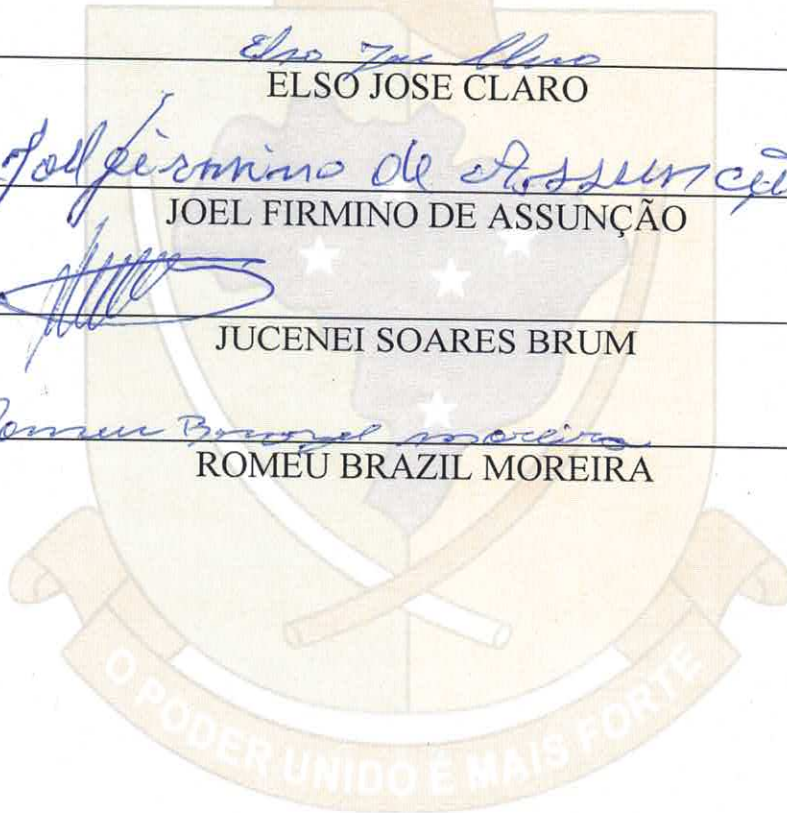 Elso Jose Claro
ELSO JOSE CLARO
Joel firmino de Assunçã
JOEL FIRMINO DE ASSUNÇÃO
JUCENEI SOARES BRUM
Romeu Brazil moreira
ROMEU BRAZIL MOREIRA
O PODER UNIDO É MAIS FORTE